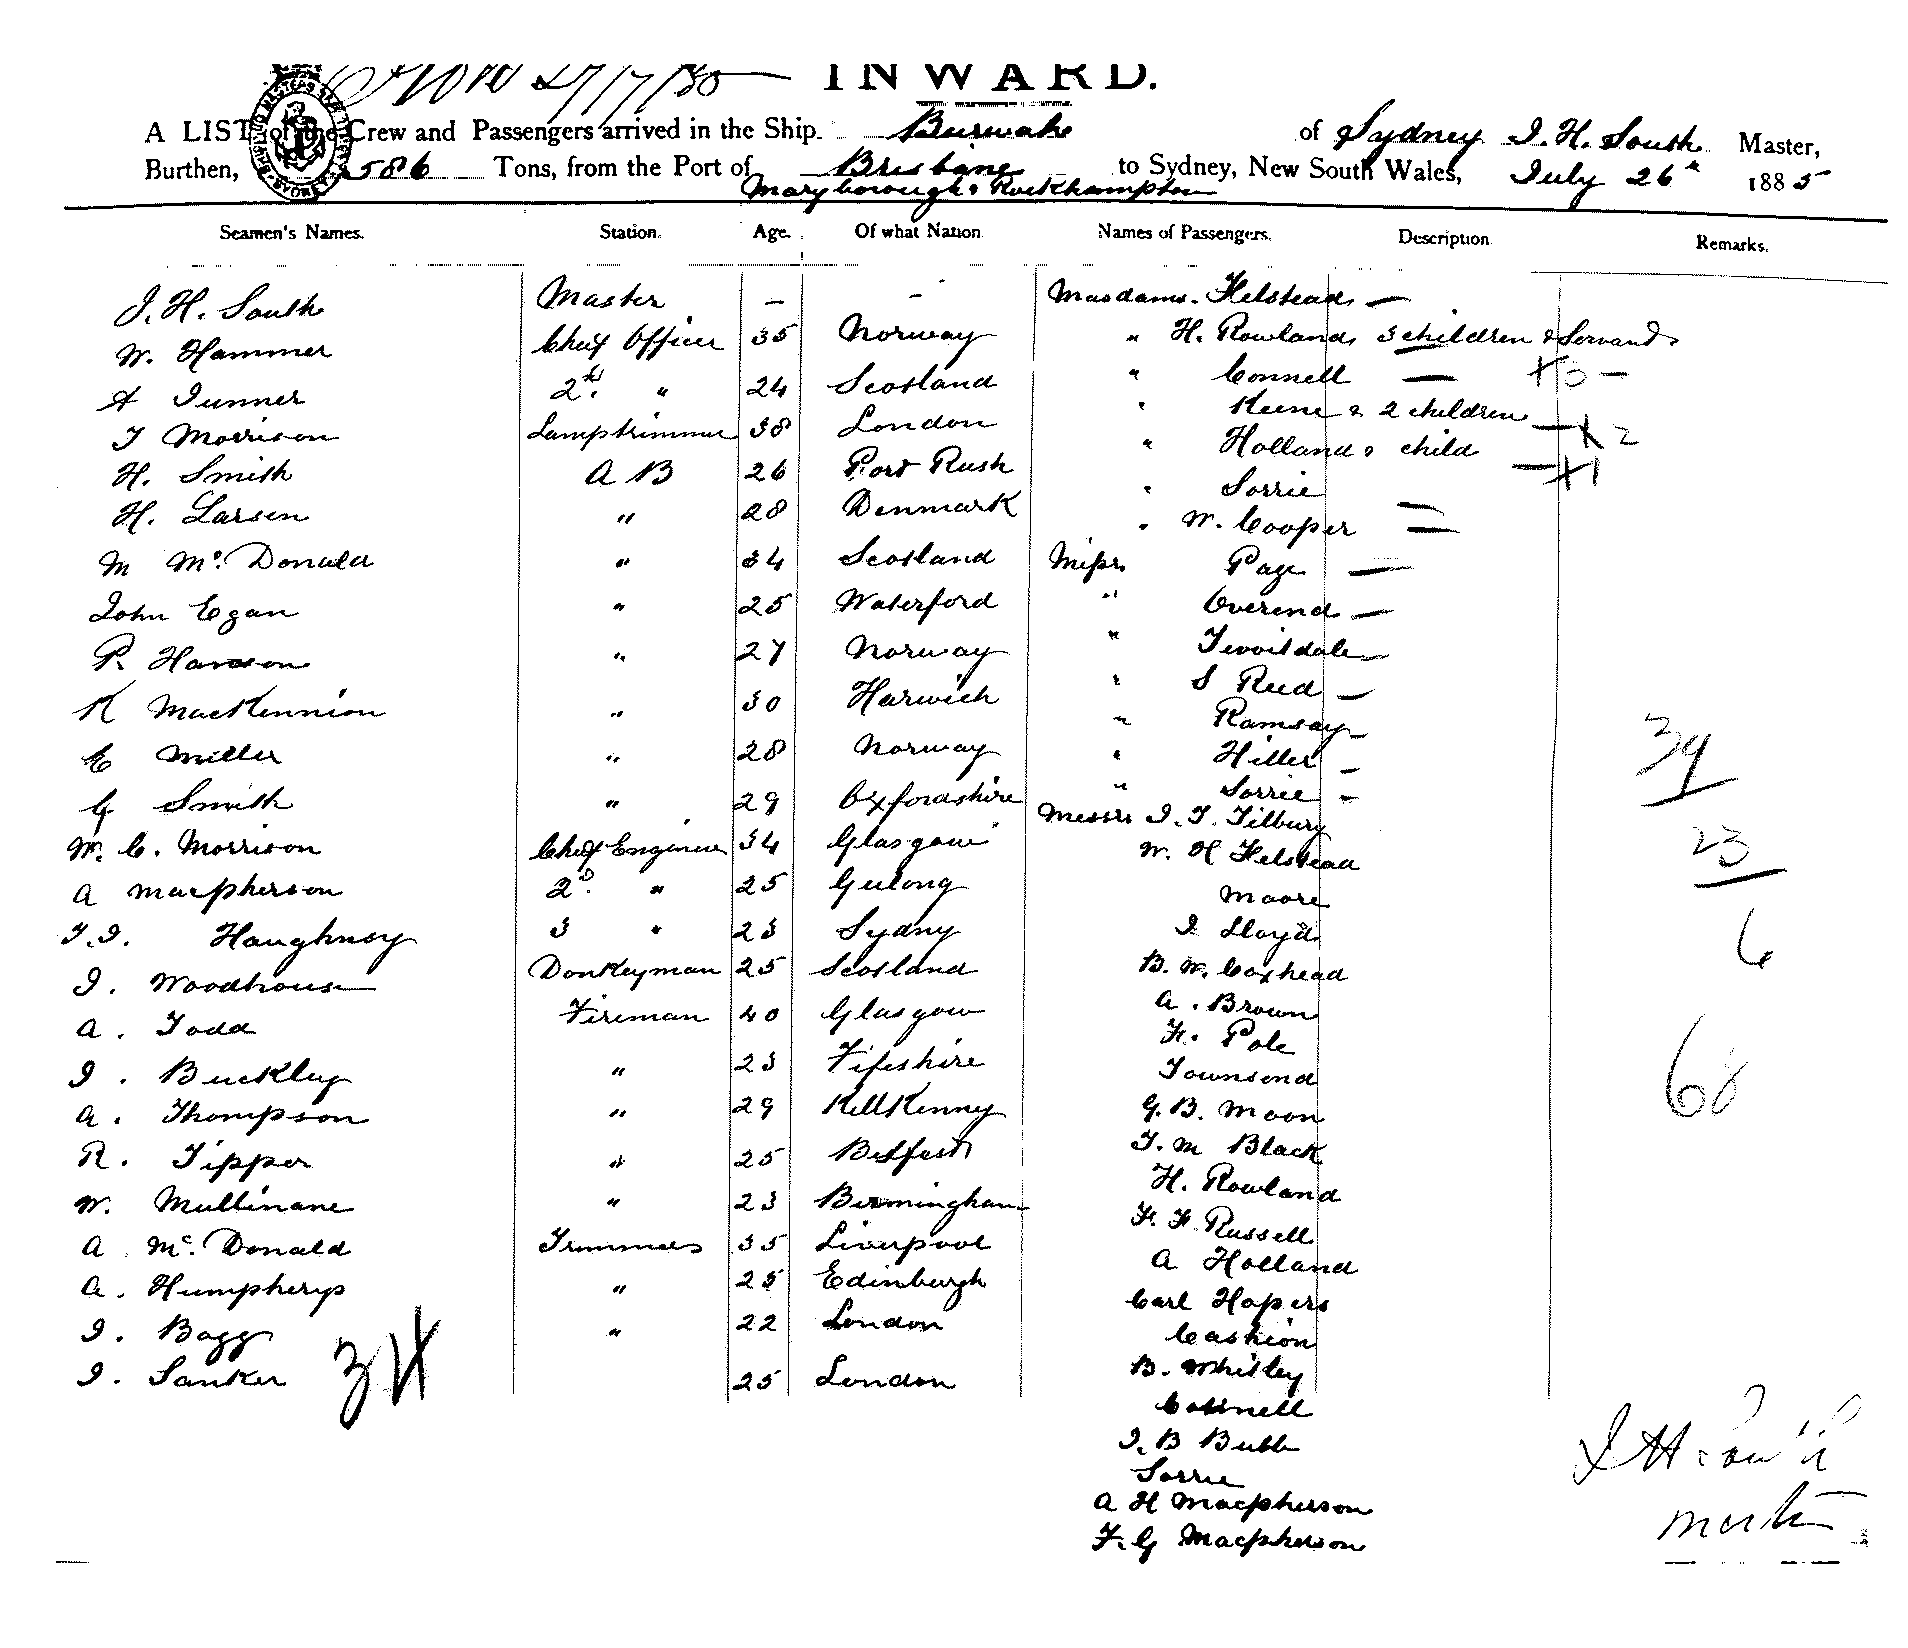 27/7/85
INWARD.
A LIST of the Crew and Passengers arrived in the Ship. Burwah of Sydney J. H. South Master,
Burthen, 586 Tons, from the Port of Brisbane to Sydney, New South Wales, July 26th 1885
Maryborough & Rockhampton
Seamen's Names. Station. Age. Of what Nation Names of Passengers. Description Remarks.
J. H. South Master — - Mesdames. Helstead —
W. Hammer Chief Officer 35 Norway " H. Rowland, 3 children & Servand
A Junner 2nd. " 24 Scotland " Connell — +3 -
T Morrison Lamptrimmer 38 London " Keene & 2 children — + 2
H. Smith A B 26 Port Rush " Holland & child — +1
H. Larsen " 28 Denmark " Sorrie —
M Mc. Donald " 34 Scotland " W. Cooper —
John Egan " 25 Waterford Misses Page —
P. Hanson " 27 Norway " Overend —
K MacKennion " 30 Harwich " Twoitdale —
E Miller " 28 Norway " S Reed —
G Smith " 29 Oxfordshire " Ramsay —
W. C. Morrison Chief Engineer 34 Glasgow " Hiller —
A Macpherson 2d. " 25 Geelong " Sorrie —
T. J. Haughney 3 " 23 Sydny Messrs J. T. Tilbury
J. Woodhouse Donkeyman 25 Scotland W. H Helstead
A. Todd Fireman 40 Glasgow Moore
J. Buckley " 23 Fifeshire J Lloyd
A. Thompson " 29 KillKenny B. W. Coxhead
R. Tipper " 25 Belfast A. Brown
W. Mullinane " 23 Birmingham F. Pole
A Mc. Donald Trimmers 35 Liverpool Townsend
A. Humpherys " 25 Edinburgh G. B. Moon
J. Bagg " 22 London T. M Black
J. Sanker 25 London H. Rowland
F. F. Russell
A Holland
Carl Hopers
Cashion
B. Whitley
Connell
J. B Bubb
Sorrie
A H Macpherson
F. G Macpherson
39
23
6
68
J H South
Master